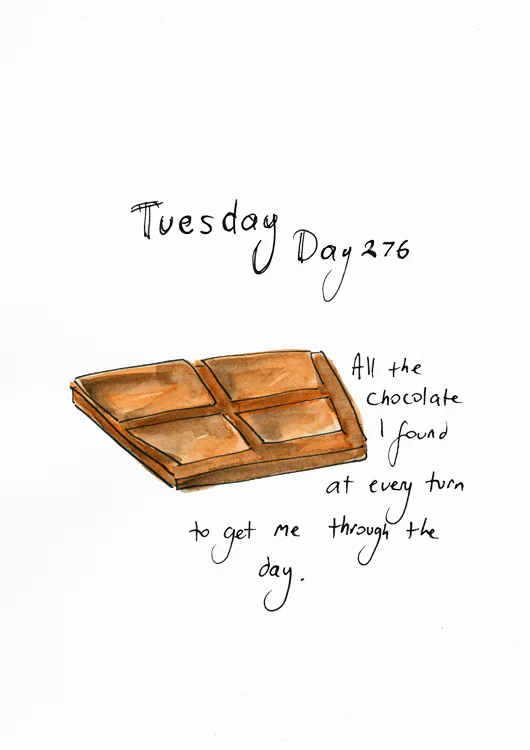 Tuesday
Day 276
All the
chocolate
I found
at every turn
to get me through the
day.